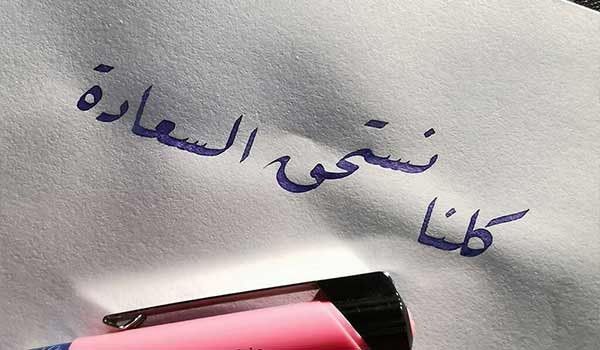 كلنا
نستحق السعادة